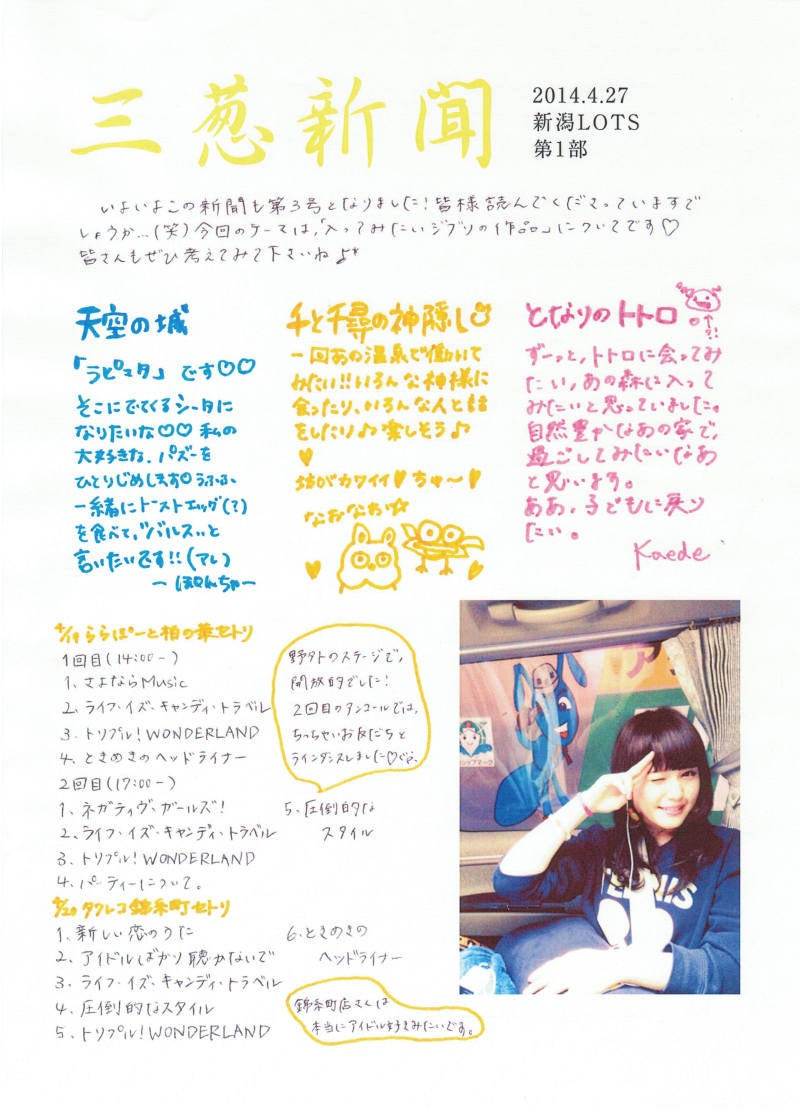 三葱新聞
2014.4.27
新潟LOTS
第1部
いよいよこの新聞も第3号となりました！皆様読んでくださっていますで
しょうか…(笑)今回のテーマは、「入ってみたいジブリの作品」についてです♡
皆さんもぜひ考えてみて下さいね♪*
天空の城
「ラピュタ」です♡♡
そこにでてくるシータに
なりたいな♡♡私の
大好きな、パズーを
ひとりじめします♡うふふ、
一緒にトーストエッグ(？)
を食べて、"バルス"と
言いたいです！！(アレ)
〜ぽんちゃ〜
千と千尋の神隠し
一回あの温泉で働いて
みたい！！いろんな神様に
会ったり、いろんな人と話
をしたり♪♪楽しそう♪♪
♥
坊がカワイイ♥ちゅ〜♥
なおなお☆
となりのトトロ。
↑?!
ずーっと、トトロに会ってみ
たい、あの森に入って
みたいと思っていました。
自然豊かなあの家で、
過ごしてみたいなあ
と思います。
ああ、子どもに戻り
たい。
Kaede
4/19ららぽーと柏の葉セトリ
1回目(14:00-)
1、さよならMusic
2、ライフ・イズ・キャンディ・トラベル
3、トリプル！WONDERLAND
4、ときめきのヘッドライナー
2回目(17:00-)
1、ネガティヴ・ガールズ！
2、ライフ・イズ・キャンディ・トラベル
3、トリプル！WONDERLAND
4、パーティーについて。
5、圧倒的な
スタイル
野外のステージで、
開放的でした！
2回目のアンコールでは、
ちっちゃいお友だちと
ラインダンスしました♡
4/20タワレコ錦糸町セトリ
1、新しい恋のうた
2、アイドルばかり聴かないで
3、ライフ・イズ・キャンディ・トラベル
4、圧倒的なスタイル
5、トリプル！WONDERLAND
6、ときめきの
ヘッドライナー
錦糸町店さんは
本当にアイドル好きみたいです。
シップマーク